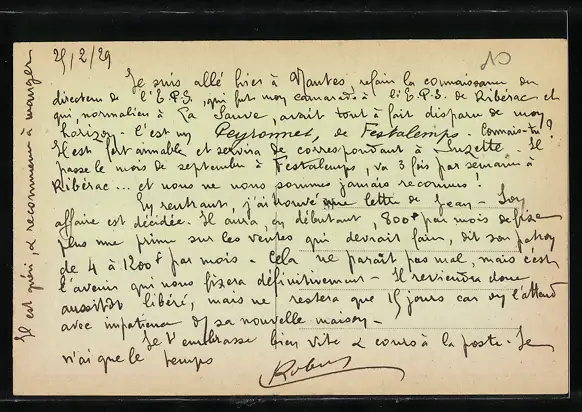 25/2/29
10
Je suis allé hier à Nantes refaire la connaissance du
directeur de l'E.P.S., qui fut mon camarade à l'E.P.S. de Ribérac et
qui, normalien à La Sauve, avait tout à fait disparu de mon
horizon. C'est un Peyronnet, de Festalemps. Connais-tu?
Il est fort aimable et servira de correspondant à Suzette. Il
passe le mois de septembre à Festalemps, va 3 fois par semaine à
Ribérac... et nous ne nous sommes jamais reconnus!
En rentrant, j'ai trouvé une lettre de Jean. Son
affaire est décidée. Il aura, en débutant, 800f par mois de fixe
plus une prime sur les ventes qui devrait faire, dit son patron
de 4 à 1200f par mois. Cela ne paraît pas mal, mais c'est
l'avenir qui nous fixera définitivement. Il reviendra donc
aussitôt libéré, mais ne restera que 15 jours car on l'attend
avec impatience à sa nouvelle maison.
Je t'embrasse bien vite & cours à la poste. Je
n'ai que le temps
Il est guéri, & recommence à manger